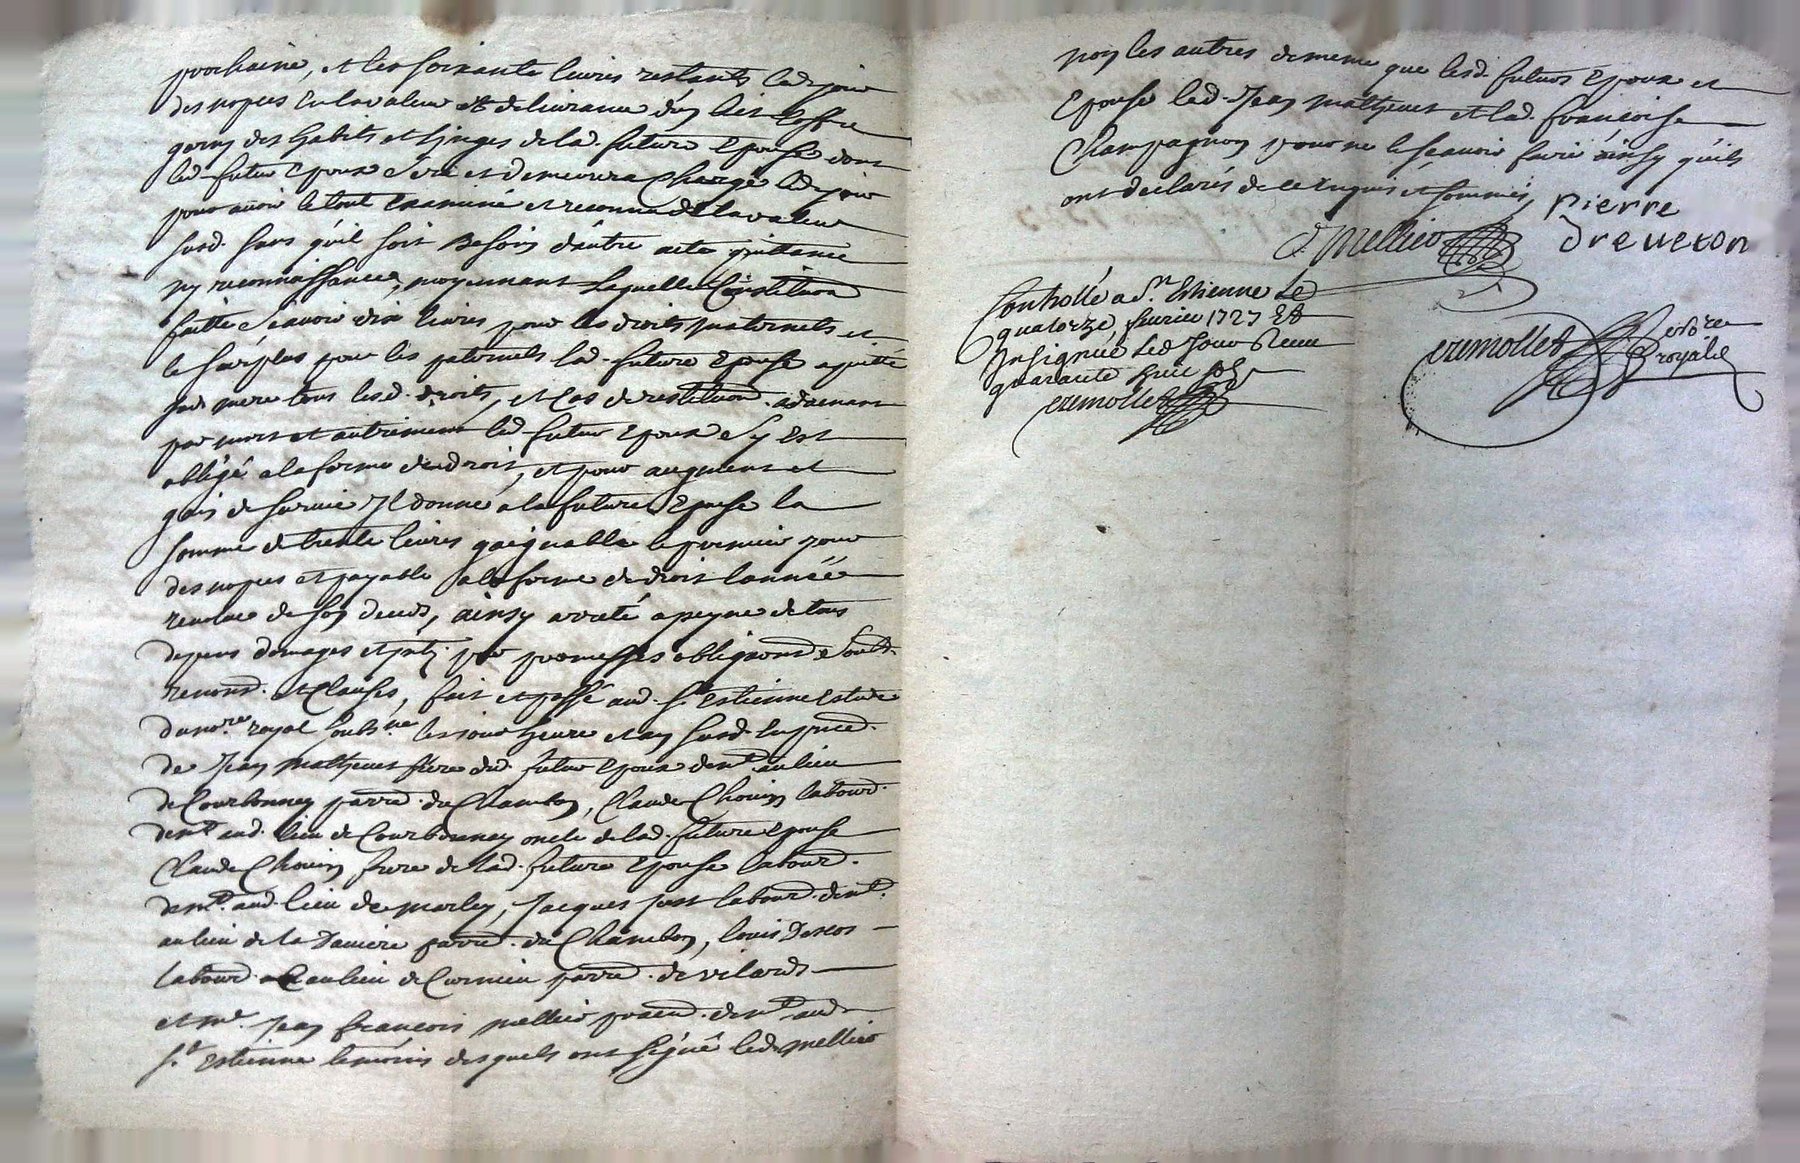 prochaine, et les soixante livres restants led. jour
des nopces en la valeur et delivrance d'un lict coffre
garny des habits et linges de lad. future epouse dont
led. futur epoux sera et demeurera chargé led. jour
pour avoir le tout examiné et reconnu de la valeur
susd. sans qu'il soit besoin d'autre acte quittance
ny reconnoissance, moyennant laquelle constitution
faitte scavoir dix livres pour les droits maternels et
le surplus pour les paternels lad. future epouse a quitté
sad. mere tous lesd. droits, et cas de restitution advenant
par mort et autrement led. futur epoux s'y est
obligé a la forme du droit, et pour augment et
gain de survie il donne a la future epouse la
somme de trente livres gaignable le premier jour
des nopces et payable a la forme de droit l'année
revolue de son deceds, ainsy arreté a peyne de tous
depens domages et intz. par promesses obligaons soubz.
renond. et clauses, fait et passé aud. St. Estienne estude
du nore. royal soubsné. les jour heure et an susd. en pnce.
de Jean Matheuet frere dud. futur epoux demt. au lieu
de Courbonney parre. du Chambon, Claude Chouin labourd.
demt. aud. lieu de Courbonney oncle de lad. future epouse
Claude Chouin frere de lad. future epouse labourd.
demt. aud. lieu de Morley, Jacques Just labourd. demt.
au lieu de la Daniere parre. du Chambon, Louis Descos
labourd. au lieu de Curnieu parre. de vilards
et Me. Jean François Mellier praend. demt. aud.
St. Estienne temoins desquels ont signé led. Mellier
non les autres de meme que lesd. futurs epoux et
epouse led. Jean Matheuet et lad. Françoise
Champagnon pour ne le scavoir faire ainsy qu'ils
ont declarés de ce enquis et sommés,
Mellier
Pierre
Dreveton
Controllé a St. Estienne le
quatorze fevrier 1727 et
Insignué led. jour Receu
quarante huit sols
cremollet
cremollet
royal